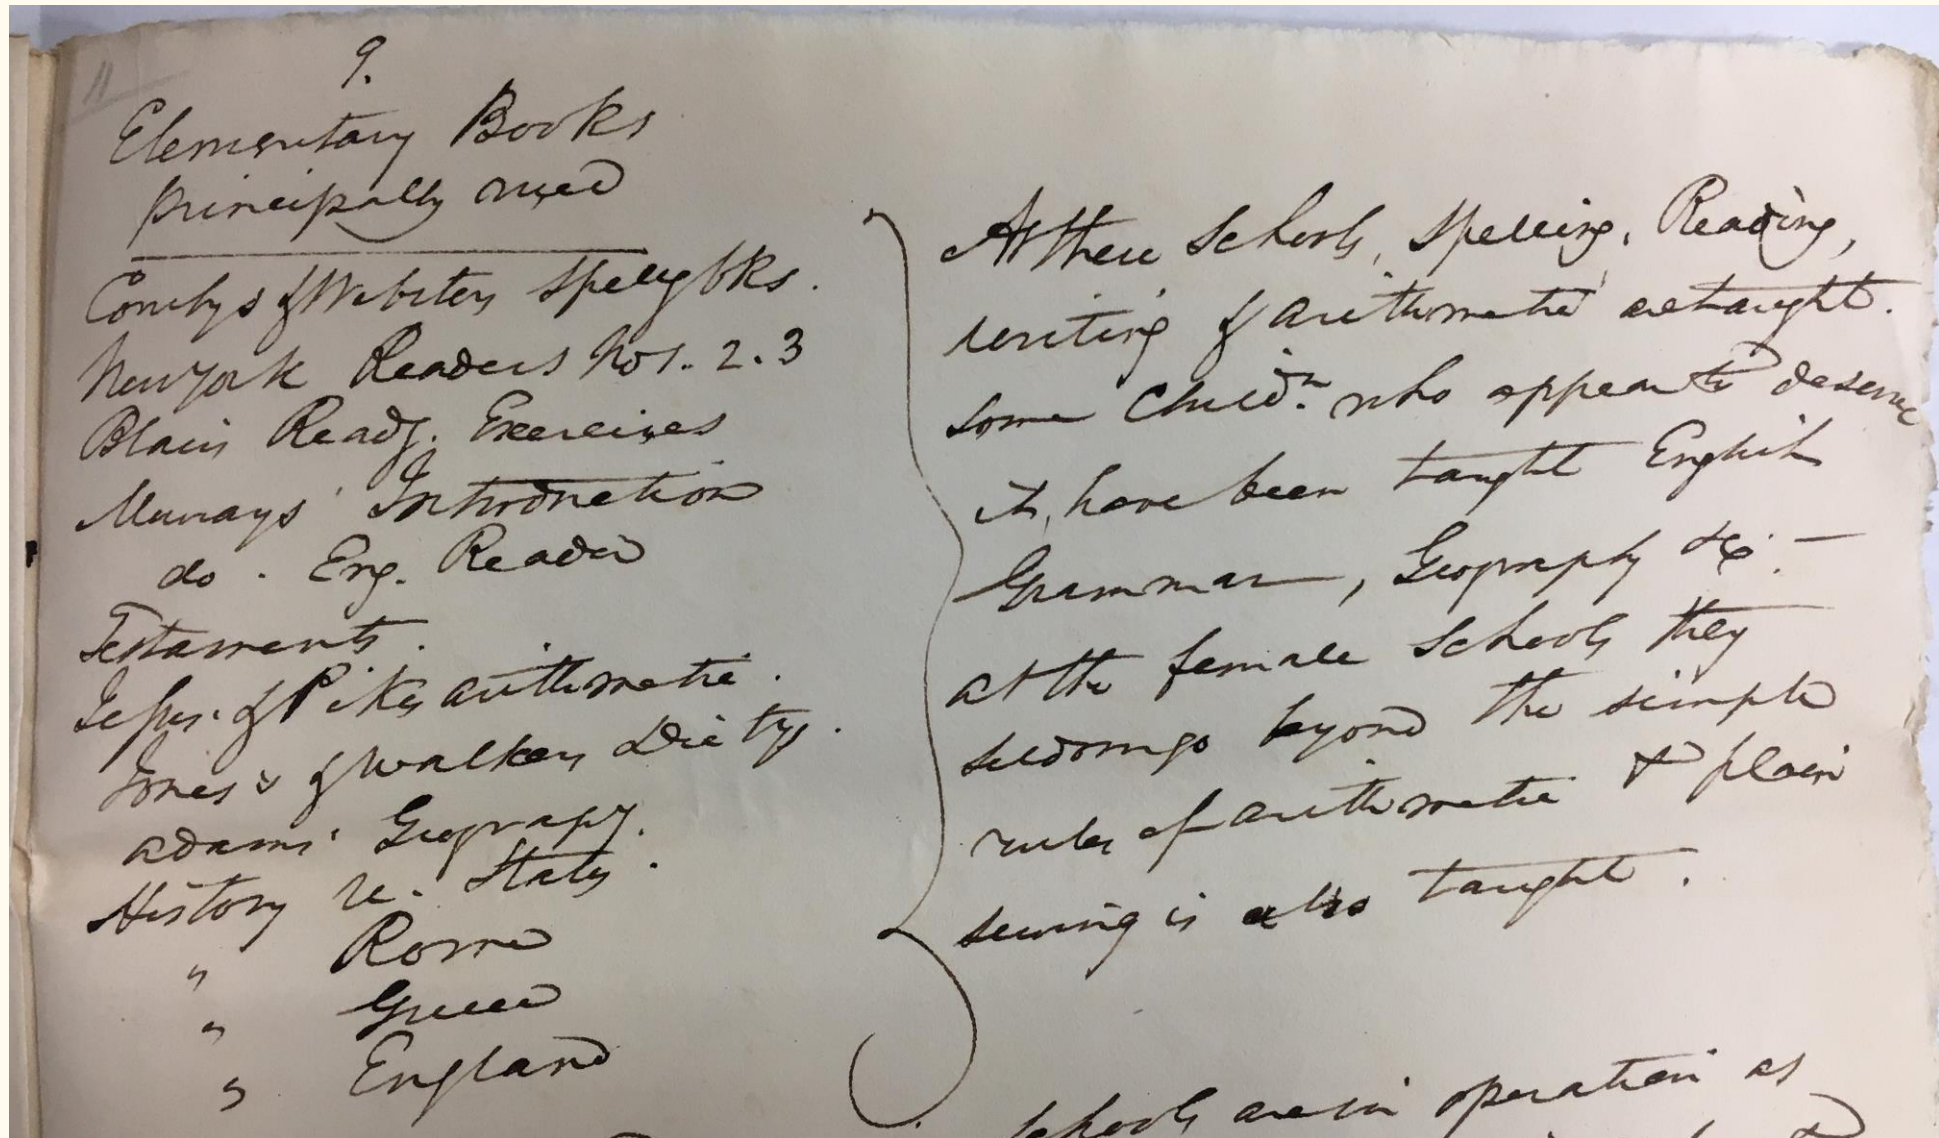 11
9.
Elementary Books
principally used
Comlys & Websters Spellg bks.
New York Readers Nos. 2. 3
Blairs Readg. Exercises
Murrays' Introduction
do. Eng. Reader
Testaments.
Jess: & Pikes arithmetic.
Jones's & Walkers Dictys.
Adams' Geograpy.
History U. States.
" Rome
" Greece
" England
At these Schools, Spelling, Reading,
writing & arithmetic are taught.
some Childn. who appear to deserve
it, have been taught English
Grammar, Geography &c. —
at the female Schools they
seldom go beyond the simple
rules of arithmetic & plain
sewing is also taught.
Schools are in operation as